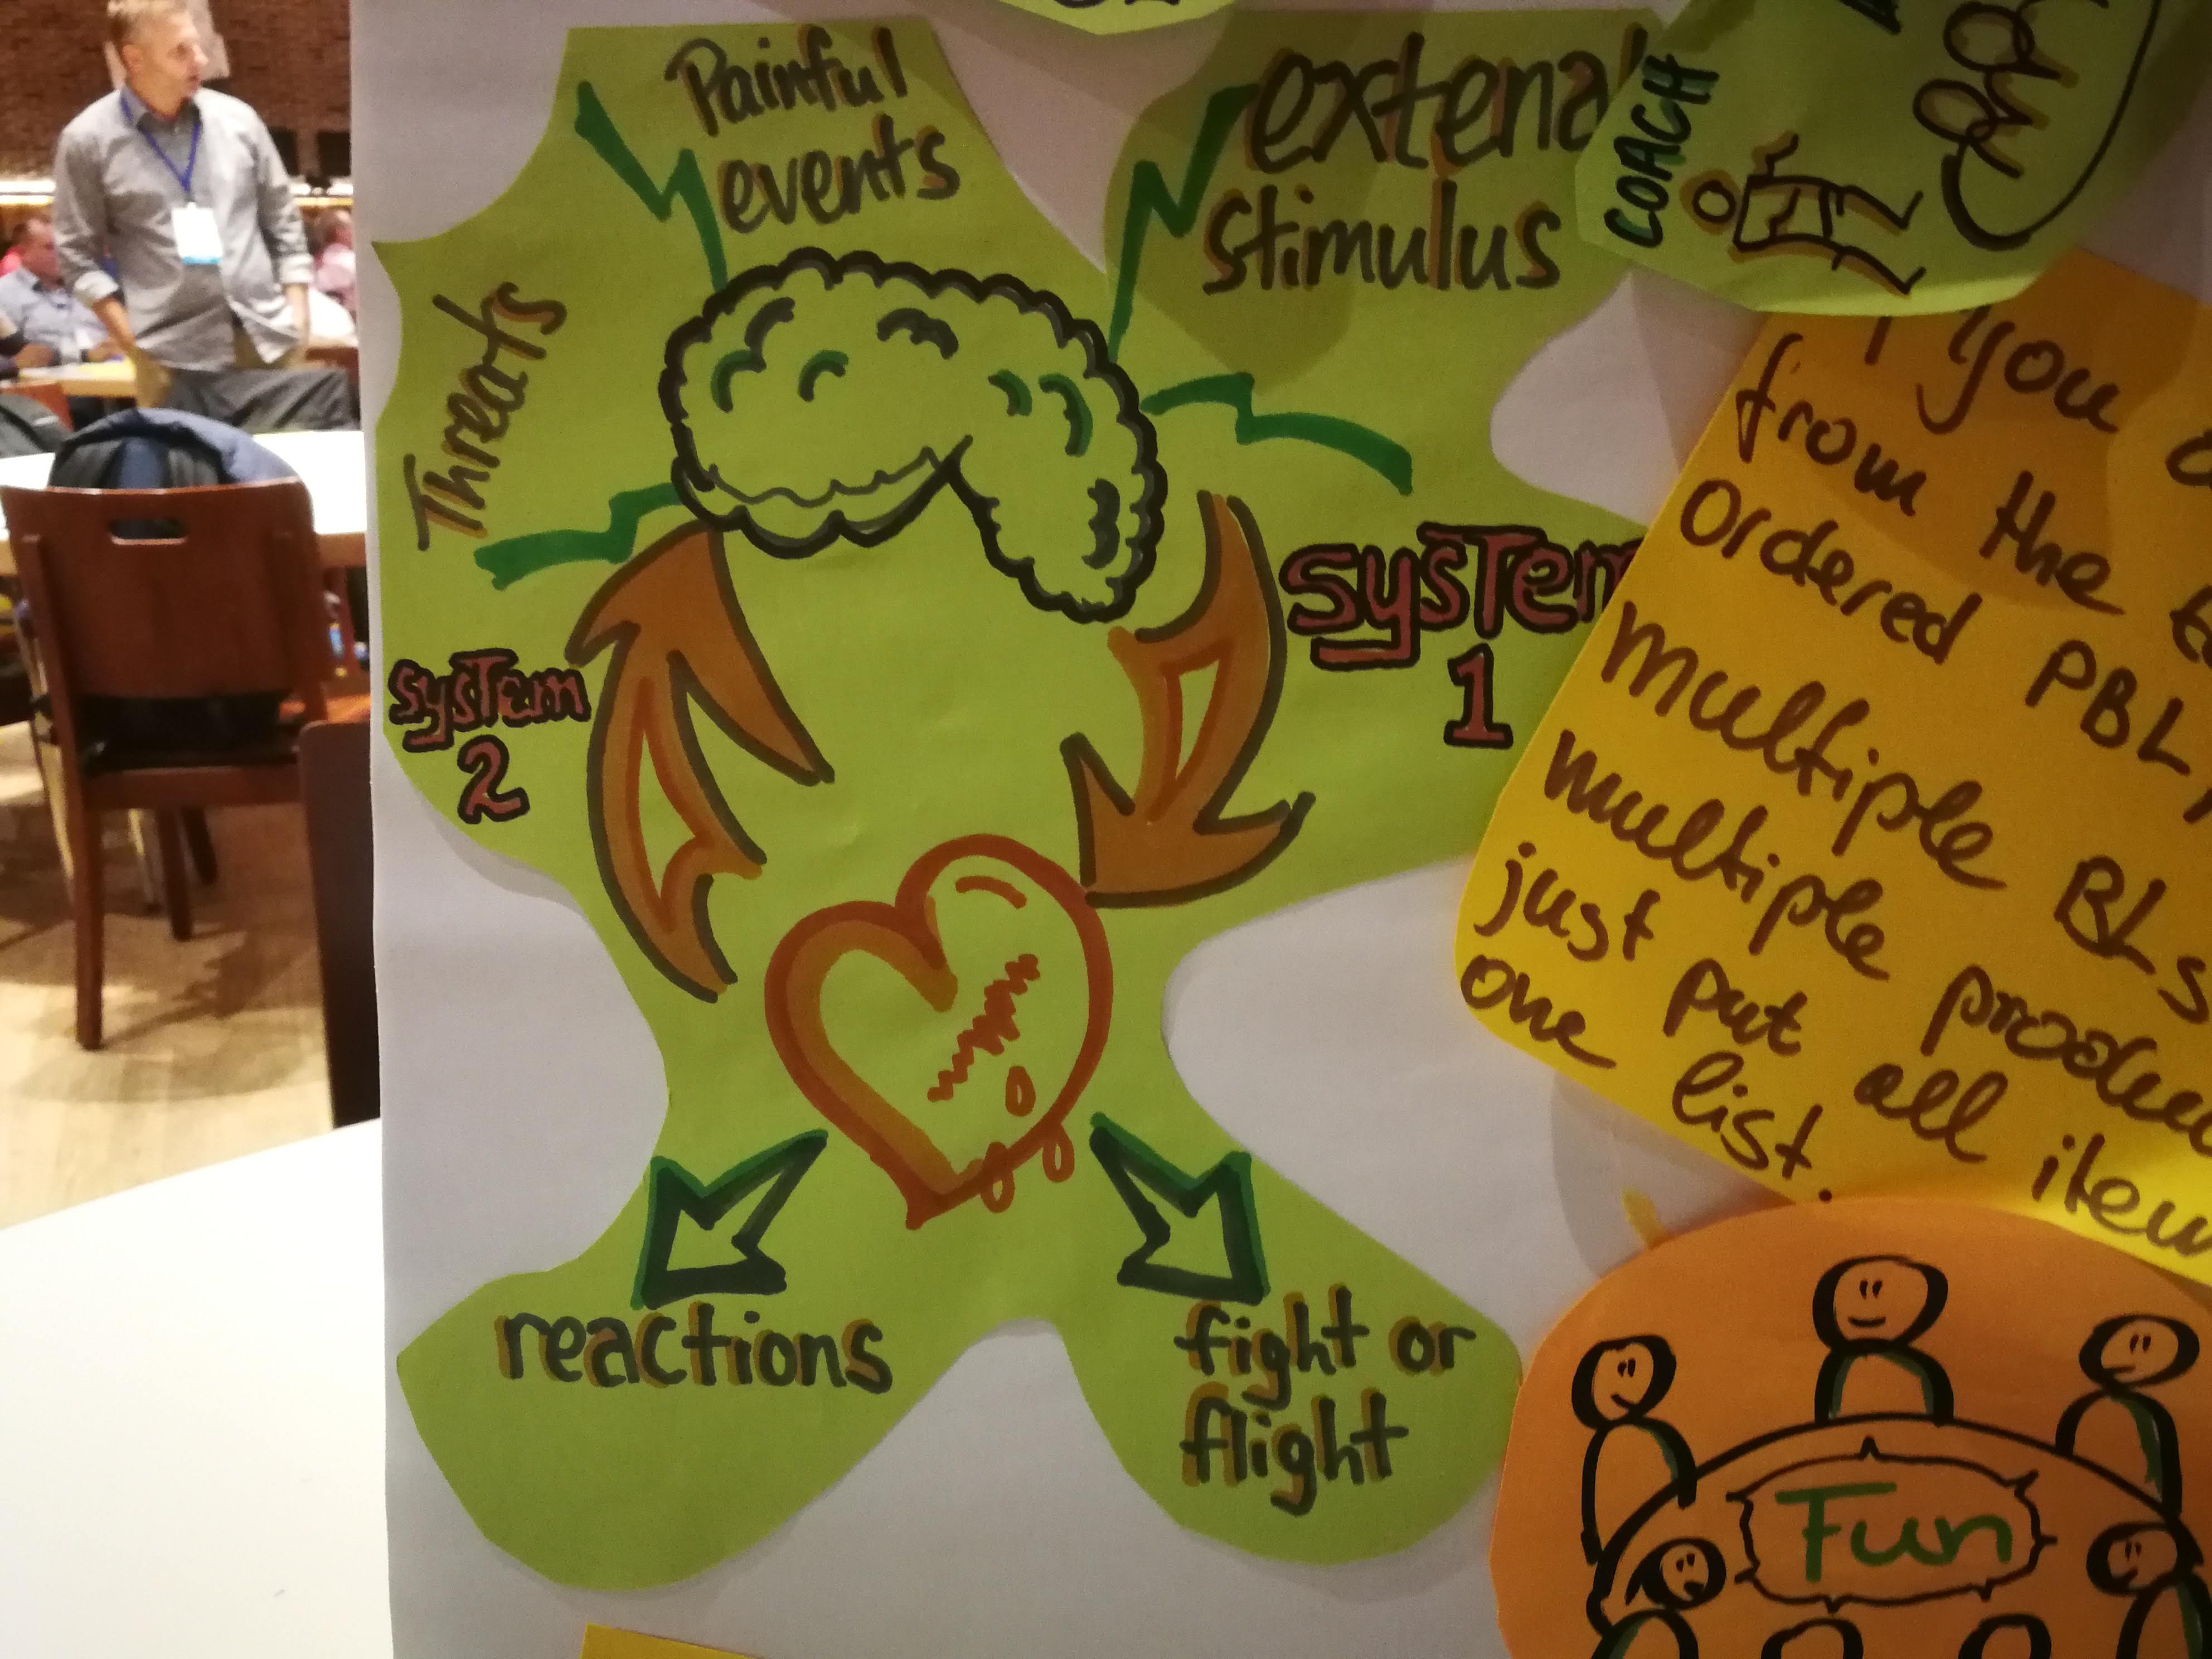 Painful
events
extenal
stimulus
Threats
system
1
system
2
reactions
fight or
flight
COACH
you
from the
Ordered PBL,
multiple BLs
multiple
just put all
one list.
Fun